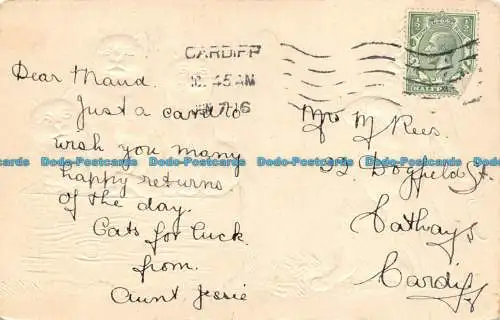 CARDIFF
12.45AM
JN 7 16
HALFPENNY
Dear Maud.
Just a card to
wish you many
happy returns
of the day.
Cats for luck
from
Aunt Jessie
Mrs M Rees.
32 Dogfield St.
Cathays
Cardiff
Dodo-Postcards Dodo-Postcards Dodo-Postcards Dodo-Postcards